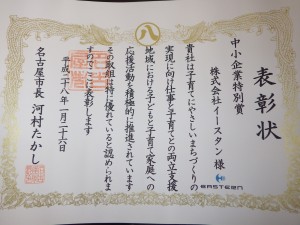 表彰状
中小企業特別賞
株式会社イースタン様
EASTERN
貴社は子育てにやさしいまちづくりの
実現に向け仕事と子育てとの両立支援
地域における子どもと子育て家庭への
応援活動を積極的に推進されています
その取組は特に優れていると認められま
すのでここに表彰します
平成二十八年一月二十六日
名古屋市長 河村たかし